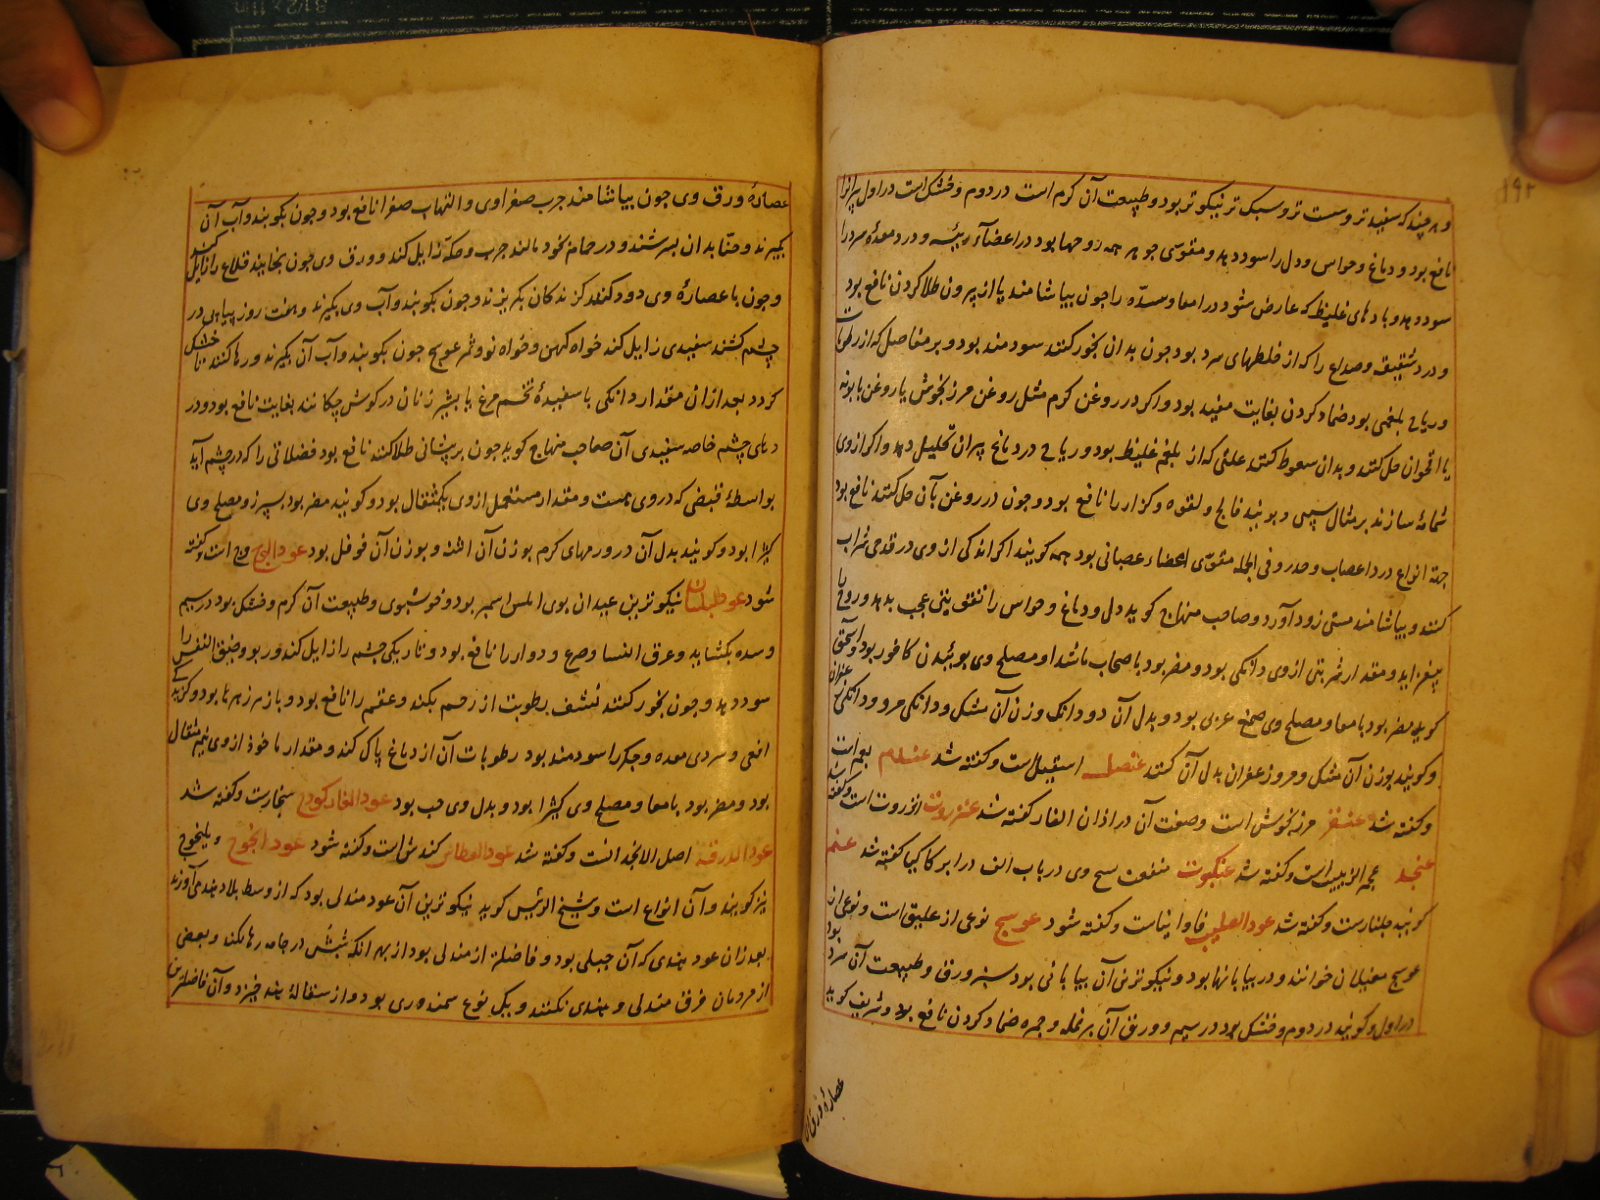 و هر چند که سفید تر و سست تر و سبک تر نیکو تر بود و طبیعت آن گرم است در دوم و خشک است در اول پیرانرا
نافع بود و دماغ و حواس و دل را سود دهد و مقوی جوهر همه روحها بود در اعضاء رئیسه و درد معده سرد را
سود دهد و بادهای غلیظ که عارض شود در امعا و سده را چون بیاشامند یا از بیرون طلا کردن نافع بود
و درد شقیقه و صداع را که از خلطهای سرد بود چون بدان بخور کنند سودمند بود و بر مفاصل که از رطوبات
و ریاح بلغمی بود ضماد کردن بغایت مفید بود و اگر در روغن گرم مثل روغن مرزنجوش یا روغن بابونه
یا اقحوان حل کنند و بدان سعوط کنند علتی که از بلغم غلیظ بود و ریاحی در دماغ پیران تحلیل دهد و اگر از وی
شمامه سازند بر مثال سیبی و بویند فالج و لقوه و کزاز را نافع بود و چون در روغن بان حل کنند نافع بود
جهة انواع درد اعصاب و خدر و فی الجمله مقوی اعضاء عصبانی بود همه گویند اگر اندکی از وی در قدحی شراب
کنند و بیاشامند مستی زود آورد و صاحب منهاج گوید دل و دماغ و حواس را تقویتی عجب بدهد و روح را
بیفزاید و مقدار شربتی از وی دانگی بود و مضر بود باصحاب ماشرا و مصلح وی بوئیدن کافور بود و اسحق
گوید مضر بود بامعا و مصلح وی صمغ عربی بود و بدل آن دو دانگ وزن آن مشک و دانگی مر و دانگی زعفران
و گویند بوزن آن مشک و مر و زعفران بدل آن کنند عنصل اسقیل است و گفته شد عندم بقم است
و گفته شد عنقز مرزنجوش است و صفت آن در اذان الفار گفته شد عنزروت انزروت است و گفته شد
عنجد عجم الزبیب است و گفته شد عنکبوت منفعت نسج وی در باب الف در ابرکاکیا گفته شد عنم
گویند جلنارست و گفته شد عود الصلیب فاوانیاست و گفته شود عوسج نوعی از علیق است و نوعی از
عوسج مغیلان خوانند و در بیابانها بود و نیکوترین آن بیابانی بود سبز ورق و طبیعت آن سرد بود
در اول و گویند در دوم و خشک بود در سیم و ورق آن بر نمله و جمره ضماد کردن نافع بود و شریف گوید
عصارهٔ ورق وی
عصارهٔ ورق وی چون بیاشامند جرب صفراوی و التهاب صفرا نافع بود و چون بکوبند و آب آن
بگیرند و حنا بدان بسرشند و در حمام بخود مالند جرب و حکه زایل کند و ورق وی چون بخایند قلاع را زایل کند
و چون با عصارهٔ وی دود کنند گزندگان بگریزند و چون بکوبند و آب وی بگیرند و هفت روز پیاپی در
چشم کشند سفیدی زایل کند خواه کهن و خواه نو و ثمر عوسج چون بکوبند و آب آن بگیرند و رها کنند تا خشک
گردد بعد ازان مقدار دانگی با سفیدهٔ تخم مرغ یا بشیر زنان در گوش چکانند بغایت نافع بود و در
دهای چشم خاصه سفیدی آن صاحب منهاج گوید چون بر پیشانی طلا کنند نافع بود فضلاتی را که در چشم آید
بواسطهٔ قبضی که در وی هست و مقدار مستعمل از وی یکمثقال بود و گویند مضر بود بسپرز و مصلح وی
کثیرا بود و گویند بدل آن در ورمهای گرم بوزن آن اشنه و بوزن آن فوفل بود عود الوج وج است و گفته
شود عود بلسان نیکوترین عیدان بوی املس اسمر بود و خوشبوی و طبیعت آن گرم و خشک بود در سیم
و سده بگشاید و عرق النسا و صرع و دوار را نافع بود و تاریکی چشم را زایل کند و ربو و ضیق النفس را
سود دهد و چون بخور کنند نشف رطوبت از رحم بکند و عقم را نافع بود و پازهر زهرها بود و گزیدگی
افعی و سردی معده و جگر را سودمند بود رطوبات آن از دماغ پاک کند و مقدار ماخوذ از وی نیم مثقال
بود و مضر بود بامعا و مصلح وی کثیرا بود و بدل وی حب بود عود الفارکوح سنجارت و گفته شد
عود الدرقه اصل الانجدانست و گفته شد عود العطاس کندش است و گفته شود عود انجوج و یلنجوج
نیز گویند و آن انواع است و شیخ الرئیس گوید نیکوترین آن عود مندلی بود که از وسط بلاد هند می‌آورند
بعد ازان عود هندی که آن جبلی بود و فاضلتر از مندلی بود از بهر آنکه شپش در جامه رها نکند و بعضی
از مردمان فرق مندلی و هندی نکنند و یک نوع سمندوری بود و از سفالهٔ هند خیزد و آن فاضلترین